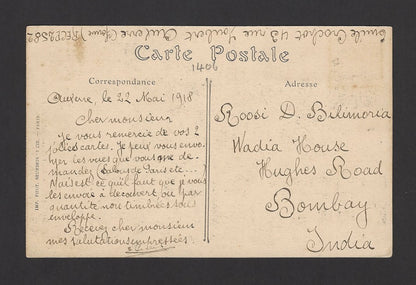 Emile Crochot 43 rue Joubert Auxerre (Yonne) FRANCE
Carte Postale
1406
Correspondance
Adresse
Auxerre, le 22 Mai 1918
Cher monsieur
Je vous remercie de vos 2
jolies cartes. Je peux vous envo-
yer les vues que vous me de-
mandez
Mais est-ce qu'il faut que je vous
les envoie à découvert ou par
quantité non timbrées sous
enveloppe.
Recevez cher monsieur
mes salutations empressées
Roosi D. Bilimoria
Wadia House
Hughes Road
Bombay
India